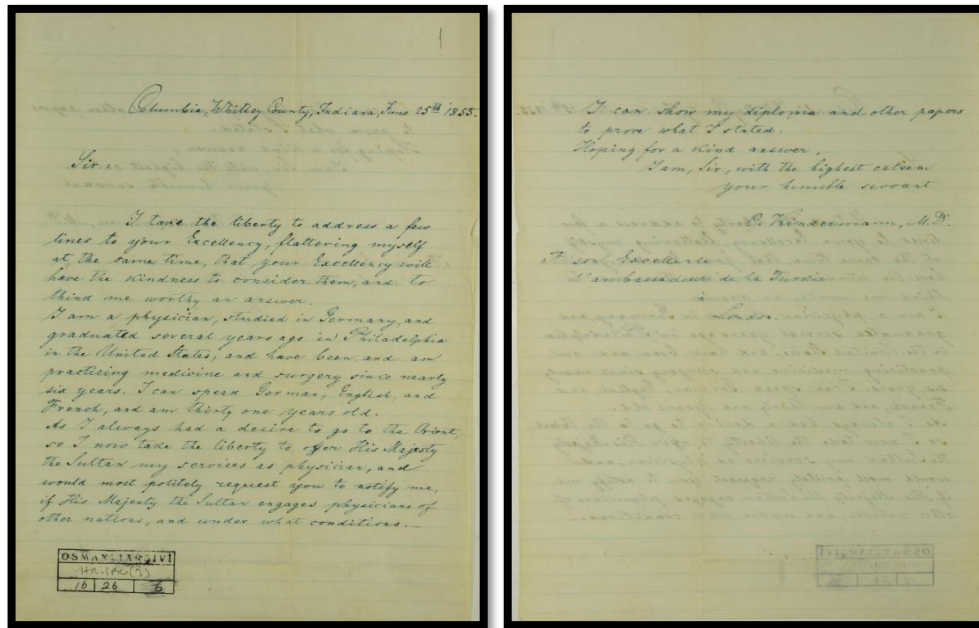 Columbia, Whitley County, Indiana, June 25th 1855.
Sir:
I take the liberty to address a few
lines to your Excellency, flattering myself
at the same time, that your Excellency will
have the kindness to consider them, and to
think me worthy an answer.
I am a physician, studied in Germany, and
graduated several years ago in Philadelphia
in the United States, and have been, and am
practicing medicine and surgery since nearly
six years. I can speak German, English, and
French, and am thirty one years old.
As I always had a desire to go to the Orient,
so I now take the liberty to offer His Majesty
the Sultan my services as physician, and
would most politely request you to notify me,
if His Majesty the Sultan engages physicians of
other nations, and under what conditions.—
OSMANLI ARŞİVİ
HR.SFR(3)
16 26 6
I can show my diploma and other papers
to prove what I stated.
Hoping for a kind answer,
I am, Sir, with the highest esteem
your humble servant
Kindermann, M.D.
A son Excellence
l'ambassadeur de la Turdie
à
London.